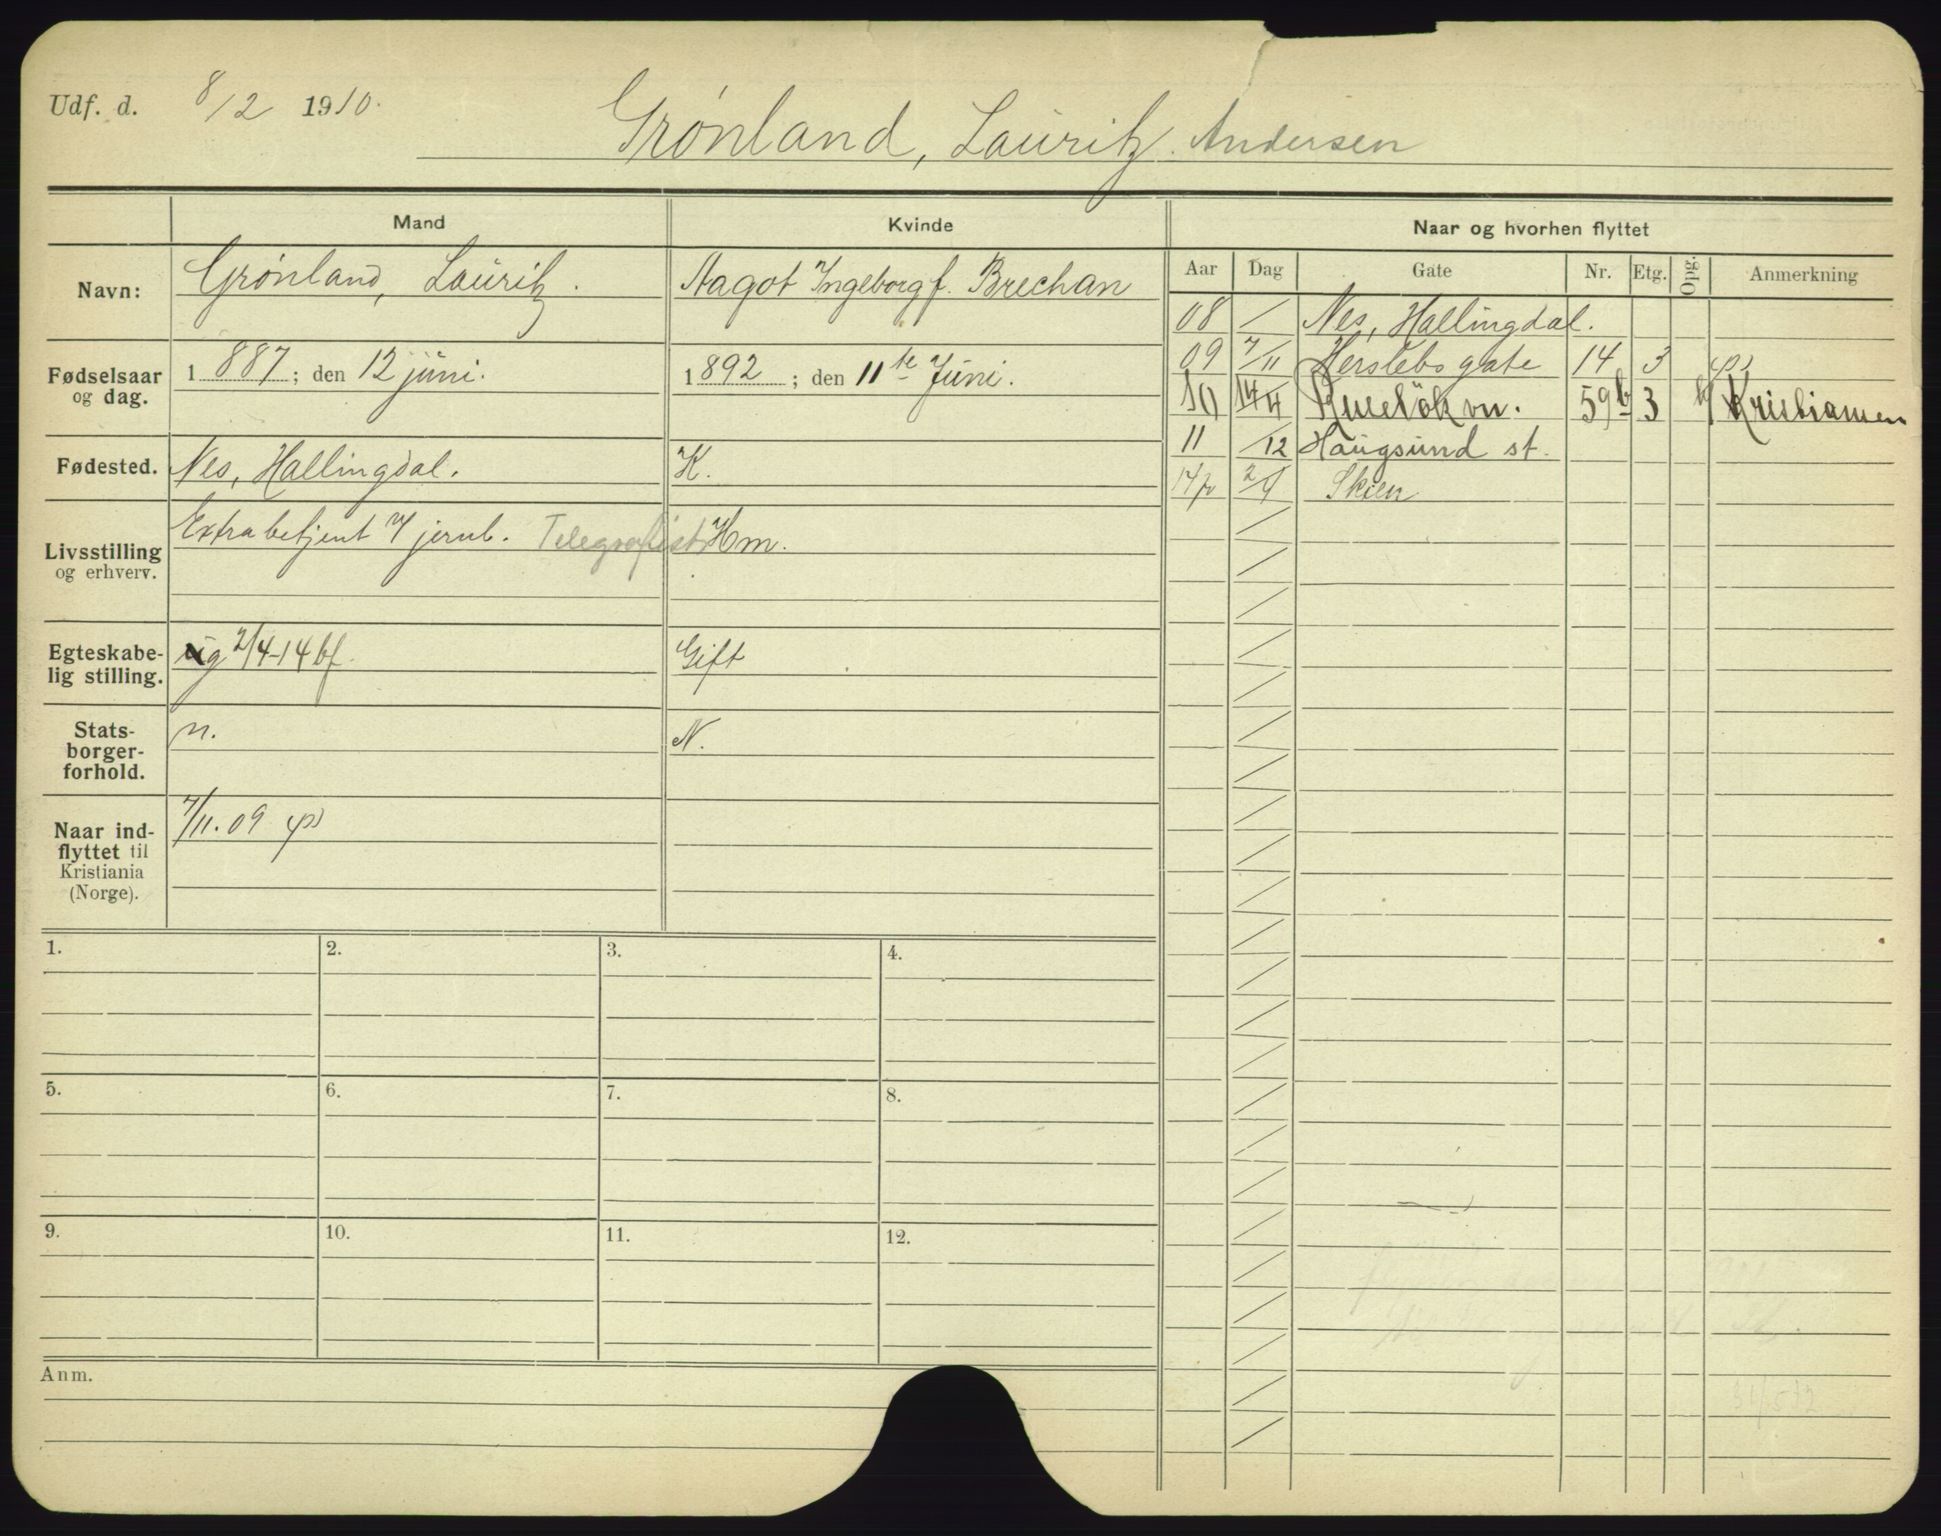 Udf. d. 8/12 1910.
Grønland, Lauritz Andersen
Mand
Kvinde
Naar og hvorhen flyttet
Aar Dag Gate Nr. Etg. Opg. Anmerkning
Navn: Grønland, Lauritz. Aagot Ingeborg f. Brechan
Fødselsaar og dag. 1887; den 12 juni. 1892; den 11te Juni.
Fødested. Nes, Hallingdal. K.
Livsstilling og erhverv. Extrabetjent v/ jernb. Telegrafist Hm.
Egteskabe-
lig stilling. ug 2/4-14 bf. Gift
Stats-
borger-
forhold. n. N.
Naar ind-
flyttet til
Kristiania
(Norge). 7/11.09 ps
08 / Nes, Hallingdal.
09 7/11 Herslebs gate 14 3 ps
10 14/4 Ruselökvn. 59b 3 b/ Kristiansen
11 /12 Haugsund st.
14 2/4 Skien
1. 2. 3. 4.
5. 6. 7. 8.
9. 10. 11. 12.
Anm.